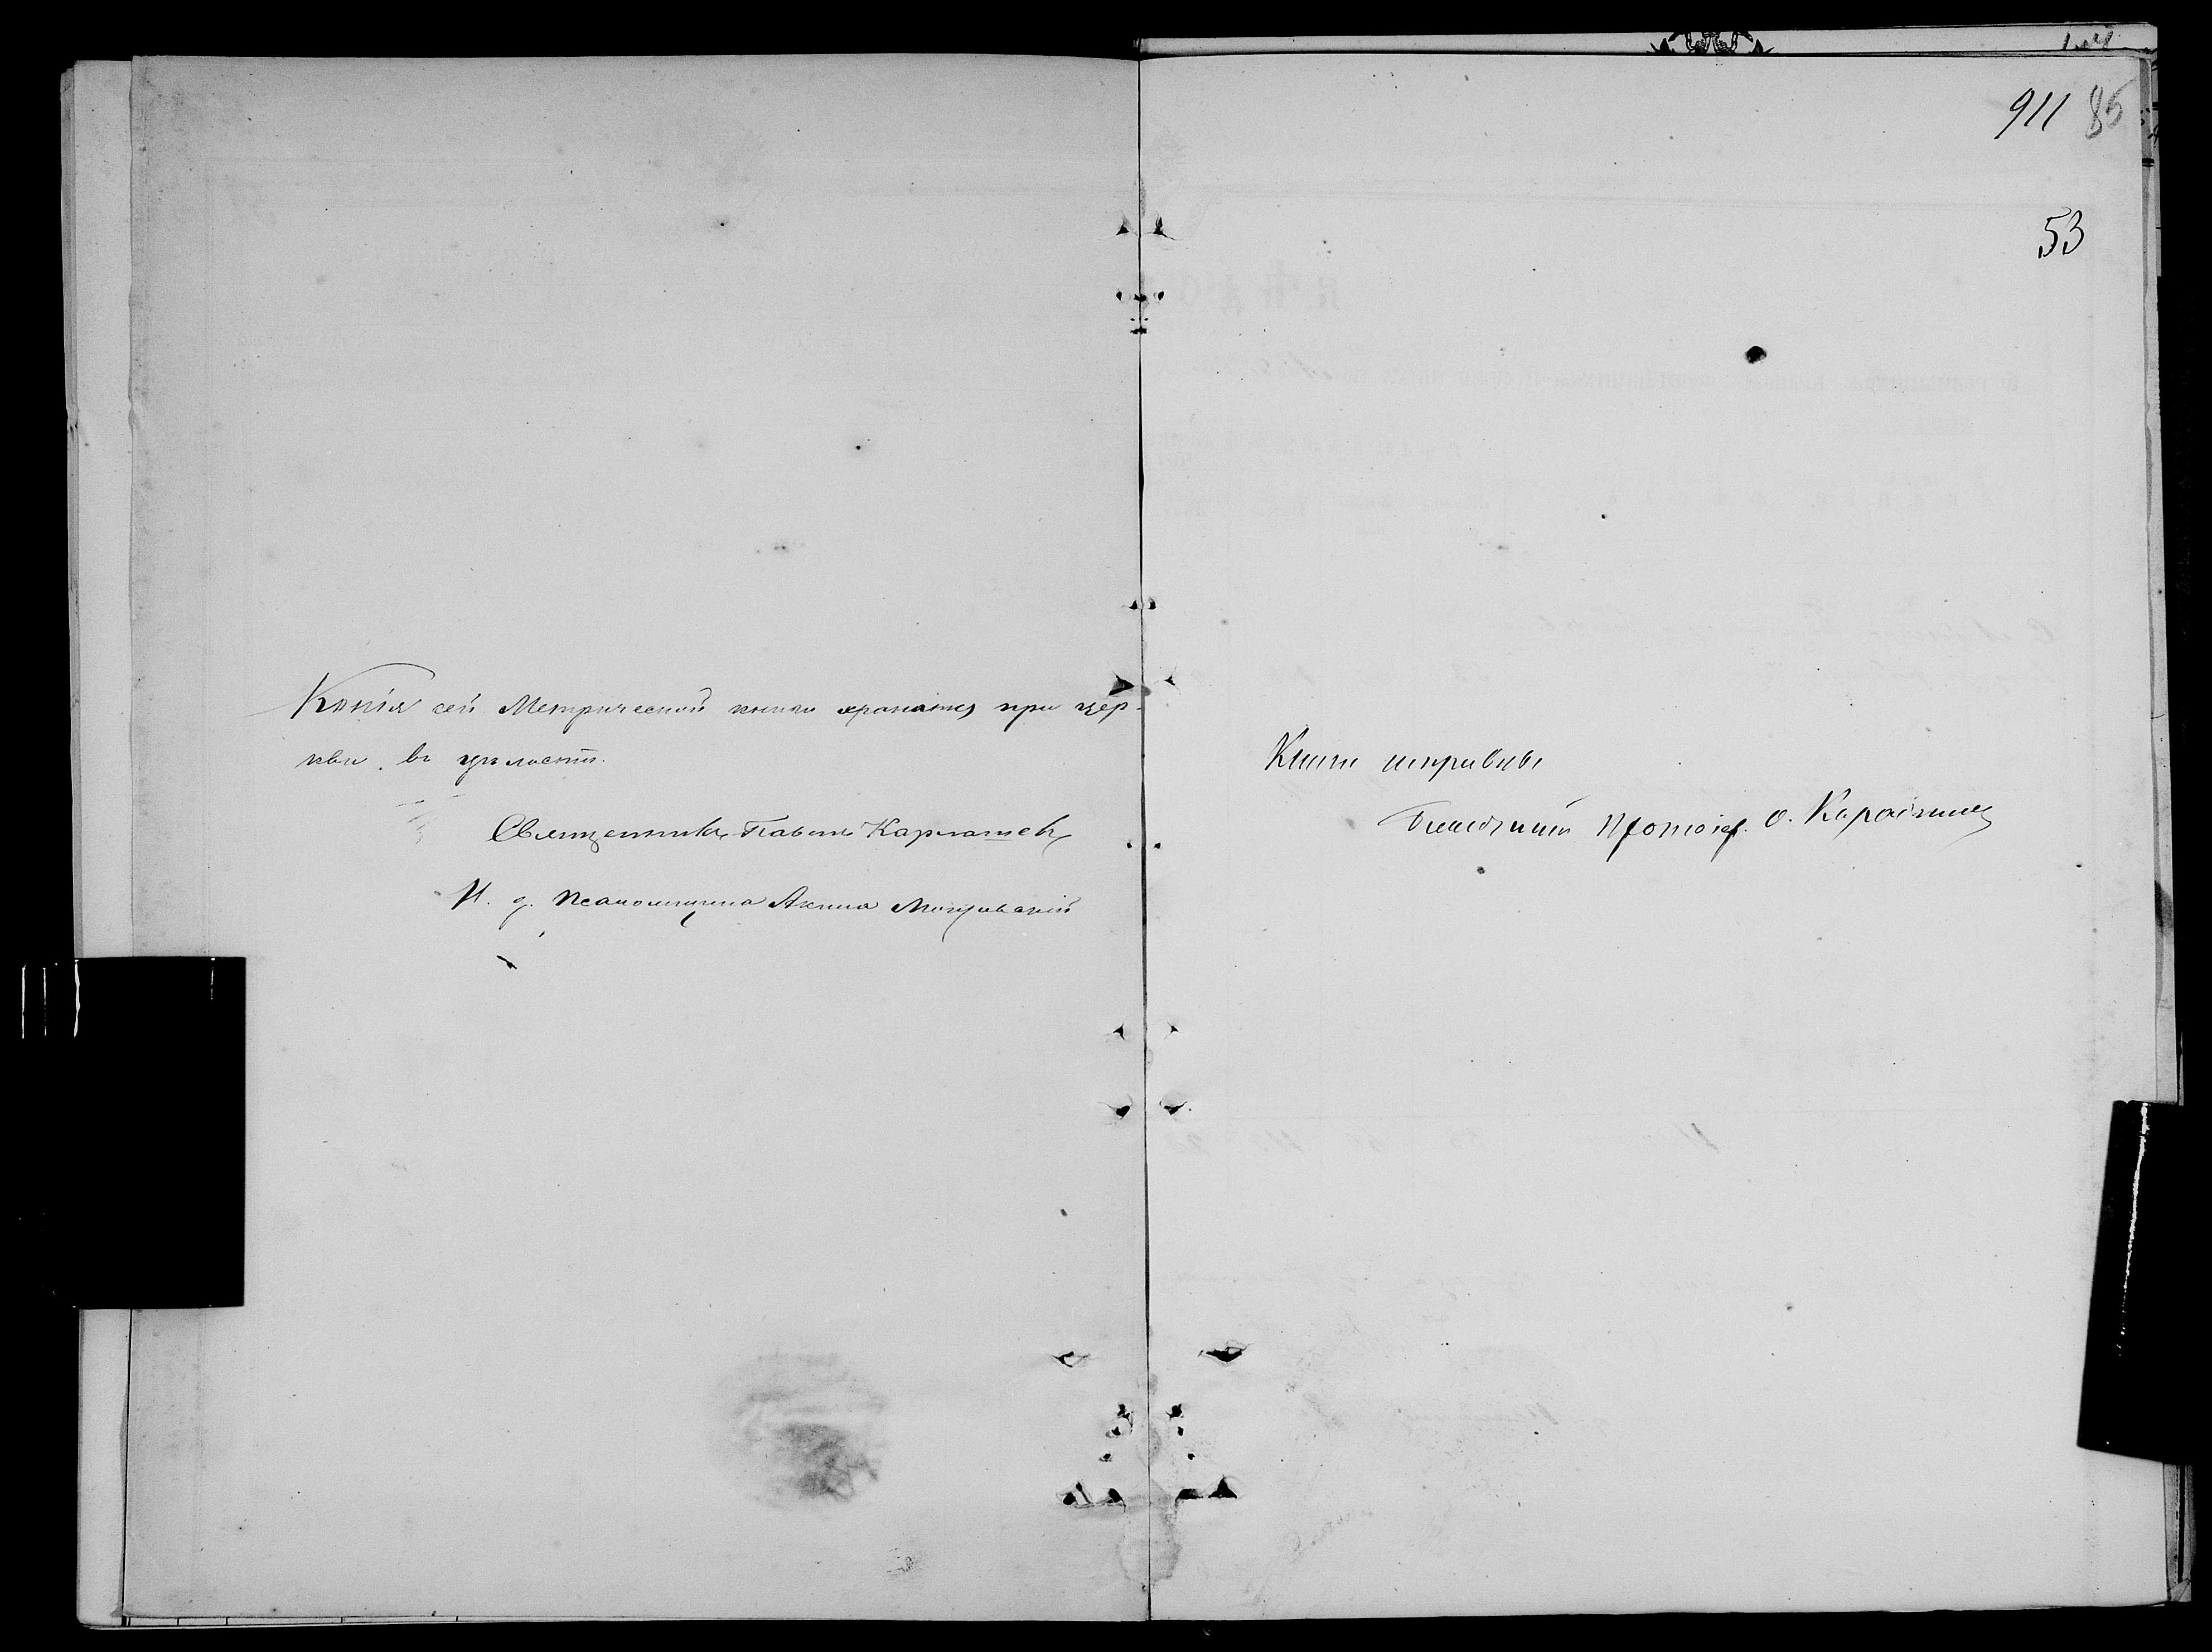 911 85
53
Копія сей Метрической книги хранится при цер-
кви въ цѣлости.
Священникъ Павелъ Карпашевъ
И. д. Псаломщика Акила
Книги исправны
Благочинный Протоіер. О.